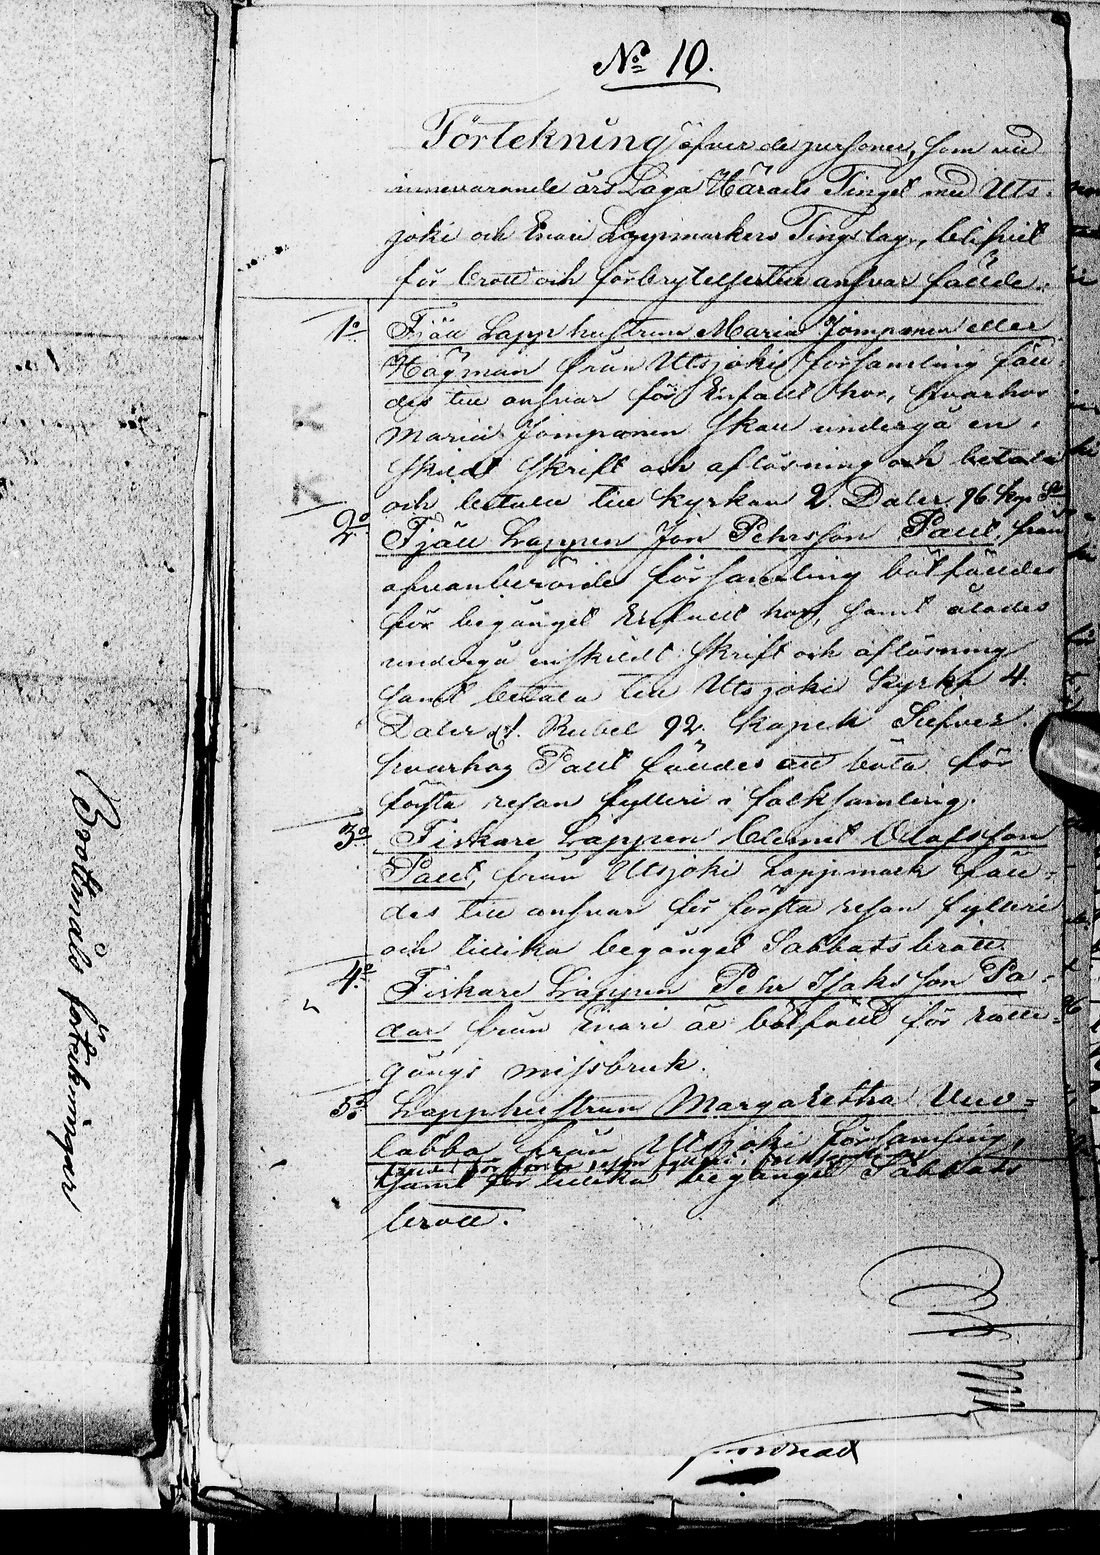 No 10.
Förtekning öfver de personer, som vid
innevarande års Laga Härads Tinget med Uts-
joki och Enari Lappmarkers Tingslag, blifvit
för brott och förbrytelser till ansvar fällde.
1o Fjäll Lapp hustrun Maria Jomppanen eller
Högman från Utsjoki församling fäll
des till ansvar för Enfalt hor, hvarhos
Maria Jomppanen skall undergå en-
skildt skrift och aflösning och betala
och betala till kyrkan 2. Daler 96 kop. Sr
2o Fjäll Lappen Jon Pehrsson Paul, från
ofvanberörde församling bötfälldes
för begånget Enfalt hor, samt ålades
undergå enskildt skrift och aflösning
samt betala till Utsjoki Kyrka 4.
Daler el. Rubel 92. kopek Silfver.
hvarhos Paul fälldes att böta för
första resan fylleri i folksamling.
3o Fiskare Lappen Clemet Olofsson
Paul, från Utsjoki Lappmark fäll-
des till ansvar för första resan fylleri
och tillika begånget Sabbatsbrott.
4o Fiskare Lappen Pehr Isaksson Pa-
dar från Enari är bötfälld för rätte-
gångs missbruk.
5o Lapphustrun Margaretha Vuo-
labba från Utsjoki församling,
för första resan fylleri i folksamling
samt för tillika begånget Sabbats
brott.
Brottmåls förtekningar